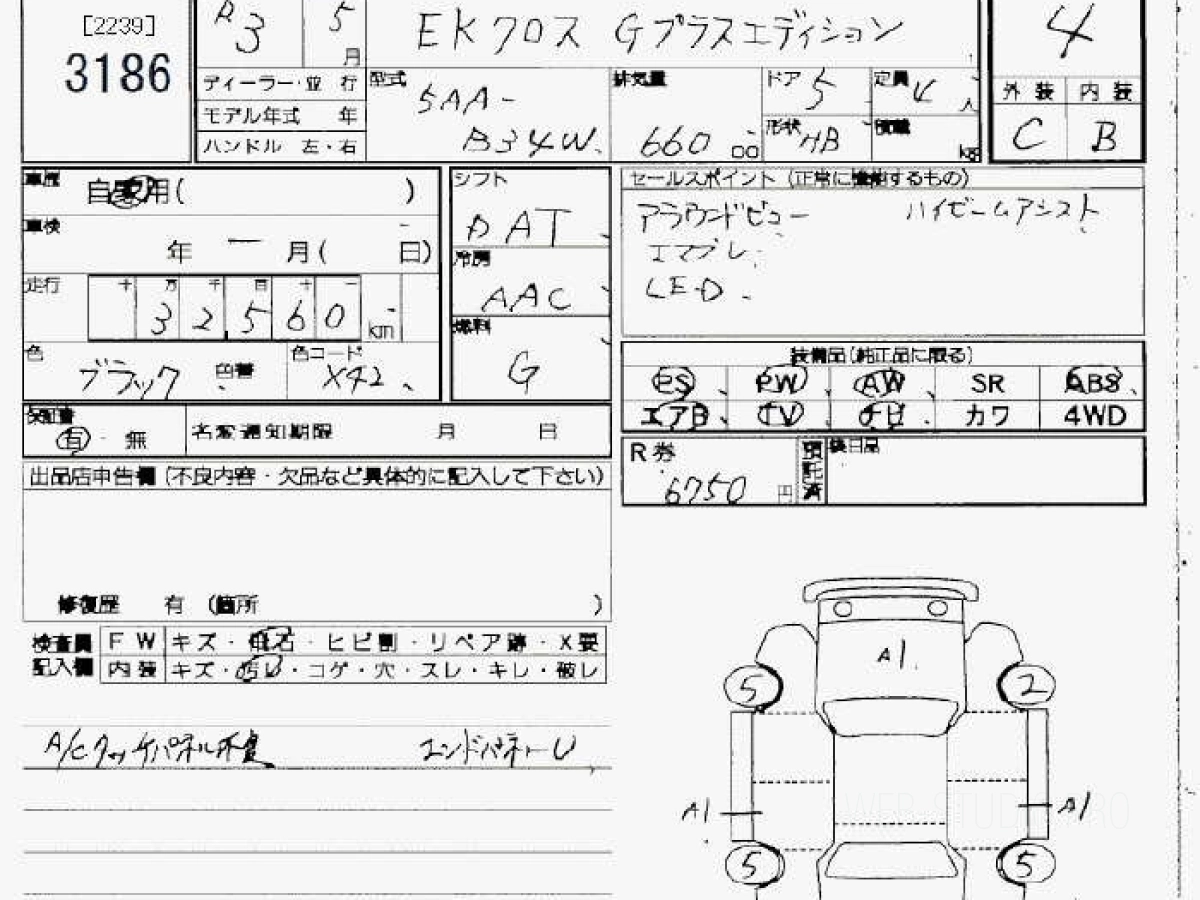 [2239]
3186
R3 5月
EKクロス Gプラスエディション
4
ディーラー・並 行
モデル年式 年
ハンドル 左・右
型式 5AA-
B34W
排気量 660 cc
ドア 5
定員 4 人
形状 HB
積載 kg
外 装 内 装
C B
車歴 自家用( )
車検 年 月( 日)
走行 十 万 千 百 十 一
3 2 5 6 0 km
色 ブラック 色替
色コード X42
シフト
DAT
冷房
AAC
燃料
G
セールスポイント (正常に機能するもの)
アラウンドビュー ハイビームアシスト
エマブレ
LED
装備品(純正品に限る)
PS PW AW SR ABS
エアB TV ナビ カワ 4WD
保証書 有・無
名変通知期限 月 日
R券 6750 円
預託済
後日品
出品店申告欄 (不良内容・欠品など具体的に記入して下さい)
修復歴 有 (箇所 )
検査員記入欄
FW キズ・飛石・ヒビ割・リペア跡・X要
内装 キズ・汚レ・コゲ・穴・スレ・キレ・破レ
エンドパネルU
A1
5 2
A1 A1
5 5
WEB-STUDIO.PRO